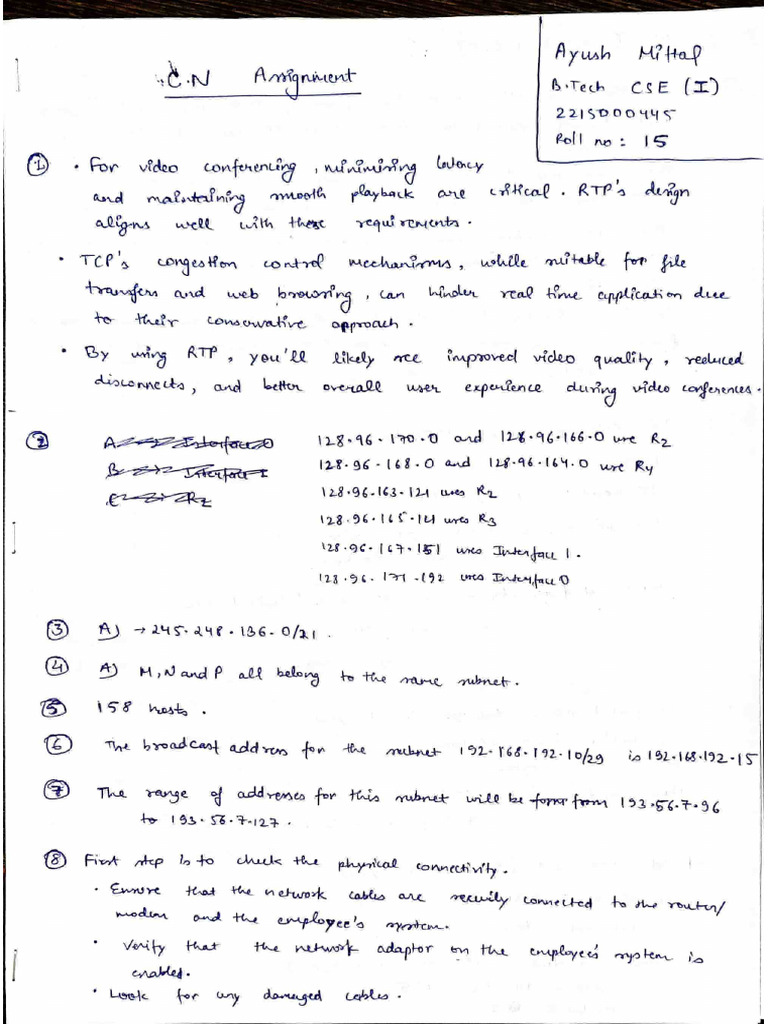 C.N Assignment
Ayush Mittal
B.Tech CSE (I)
2215000445
Roll no: 15
① • For video conferencing, minimizing latency
and maintaining smooth playback are critical. RTP's design
aligns well with these requirements.
• TCP's congestion control mechanisms, while suitable for file
transfers and web browsing, can hinder real time application due
to their conservative approach.
• By using RTP, you'll likely see improved video quality, reduced
disconnects, and better overall user experience during video conferences.
② A → Interface 0 128.96.170.0 and 128.96.166.0 use R2
B → Interface 1 128.96.168.0 and 128.96.164.0 use R4
C → R2 128.96.163.121 uses R2
128.96.165.121 uses R3
128.96.167.151 uses Interface 1.
128.96.171.192 uses Interface 0
③ A) → 245.248.136.0/21.
④ A) M, N and P all belong to the same subnet.
⑤ 158 hosts.
⑥ The broadcast address for the subnet 192.168.192.10/29 is 192.168.192.15
⑦ The range of addresses for this subnet will be from 193.56.7.96
to 193.56.7.127.
⑧ First step is to check the physical connectivity.
• Ensure that the network cables are securily connected to the router/
modem and the employee's system.
• Verify that the network adaptor on the employee's system is
enabled.
• Look for any damaged cables.